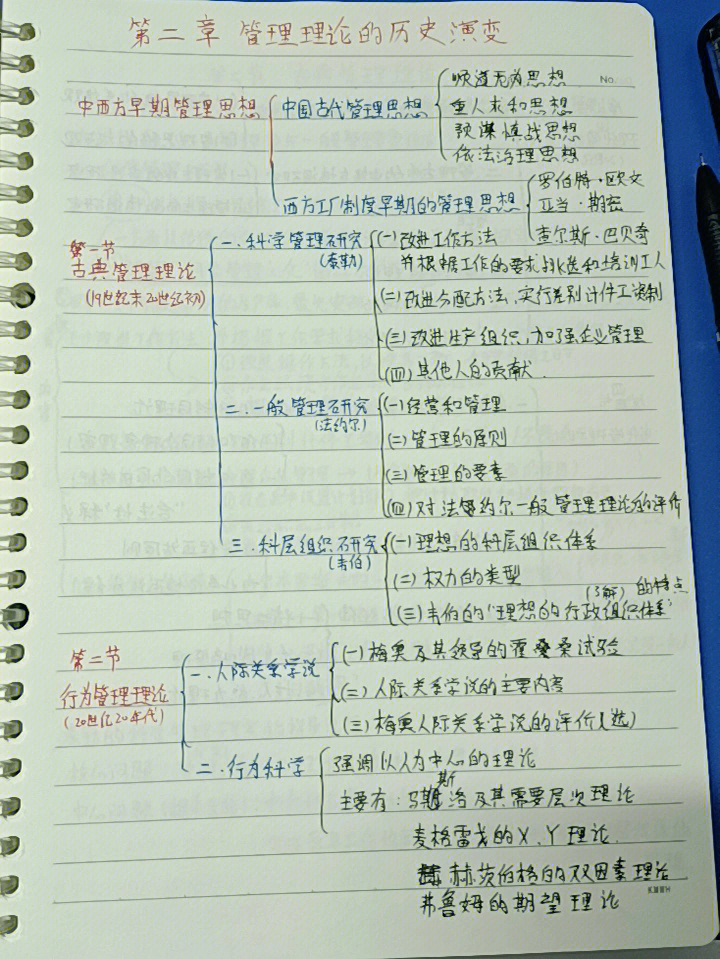 第二章 管理理论的历史演变
No.
中西方早期管理思想
中国古代管理思想
顺道无为思想
重人求和思想
预谋慎战思想
依法治理思想
西方工厂制度早期的管理思想
罗伯特·欧文
亚当·斯密
查尔斯·巴贝奇
第一节
古典管理理论
(19世纪末20世纪初)
一.科学管理研究
(泰勒)
(一)改进工作方法
并根据工作的要求挑选和培训工人
(二)改进分配方法,实行差别计件工资制
(三)改进生产组织,加强企业管理
(四)其他人的贡献.
二.一般管理研究
(法约尔)
(一)经营和管理
(二)管理的原则
(三)管理的要素
(四)对法约尔一般管理理论的评价
三.科层组织研究
(韦伯)
(一)理想的科层组织体系
(二)权力的类型
(三)韦伯的"理想的行政组织体系"的特点
(了解)
第二节
行为管理理论
(20世纪20年代)
一.人际关系学说
(一)梅奥及其领导的霍桑试验
(二)人际关系学说的主要内容
(三)梅奥人际关系学说的评价(选)
二.行为科学
强调以人为中心的理论
主要有:马斯洛及其需要层次理论
麦格雷戈的X、Y理论.
赫茨伯格的双因素理论
弗鲁姆的期望理论